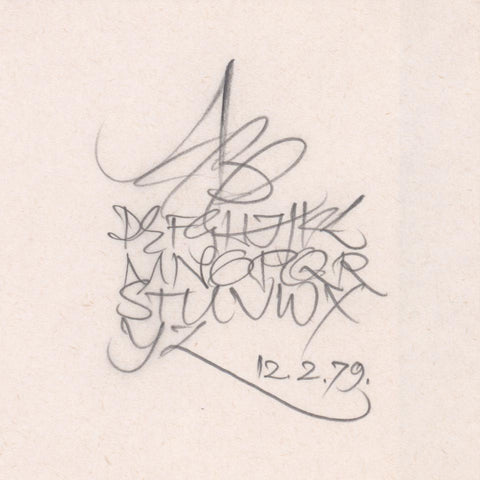 ABC
DEFGHIJKL
MNOPQR
STUVWX
YZ
12.2.79.